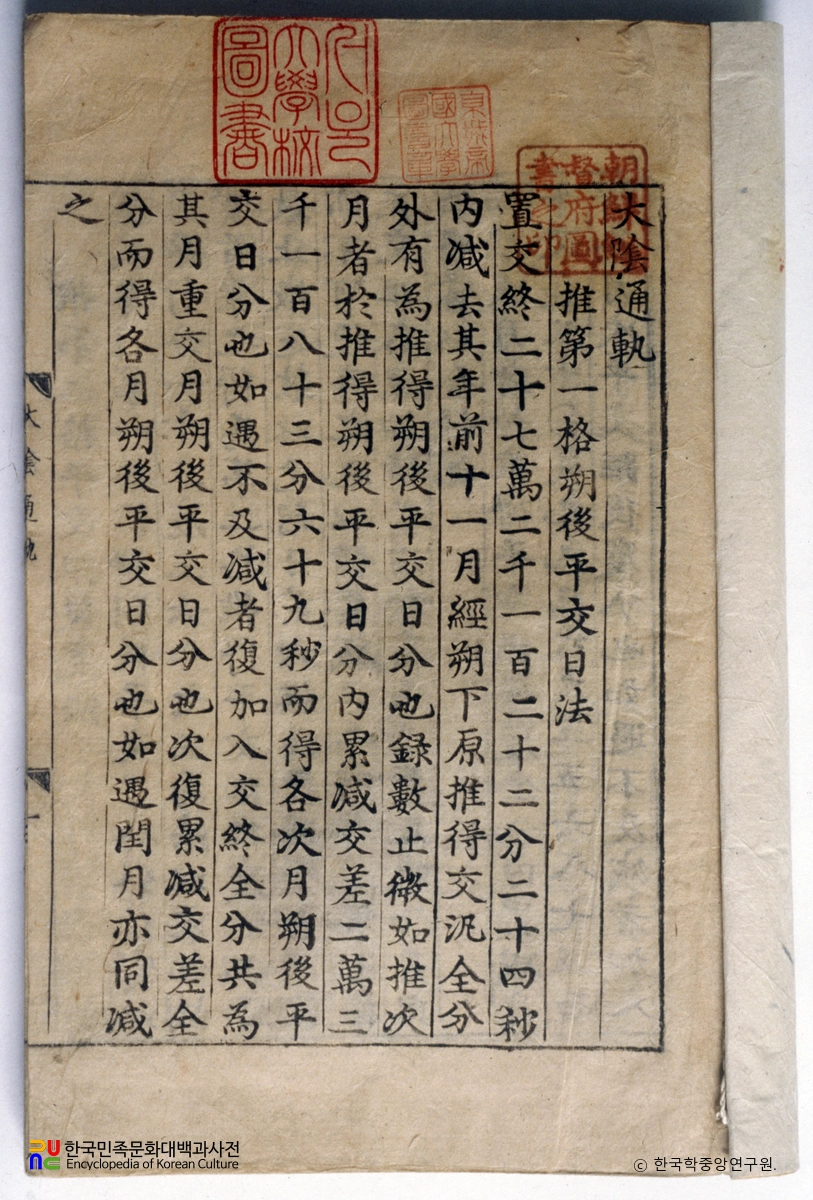 大陰通軌
推第一格朔後平交日法
置交終二十七萬二千一百二十二分二十四秒
內減去其年前十一月經朔下原推得交汎全分
外有為推得朔後平交日分也錄數止微如推次
月者於推得朔後平交日分內累減交差二萬三
千一百八十三分六十九秒而得各次月朔後平
交日分也如遇不及減者復加入交終全分共為
其月重交月朔後平交日分也次復累減交差全
分而得各月朔後平交日分也如遇閏月亦同減
之
大陰通軌
朝鮮總督府圖書之印
圖書
한국민족문화대백과사전
Encyclopedia of Korean Culture
ⓒ 한국학중앙연구원.